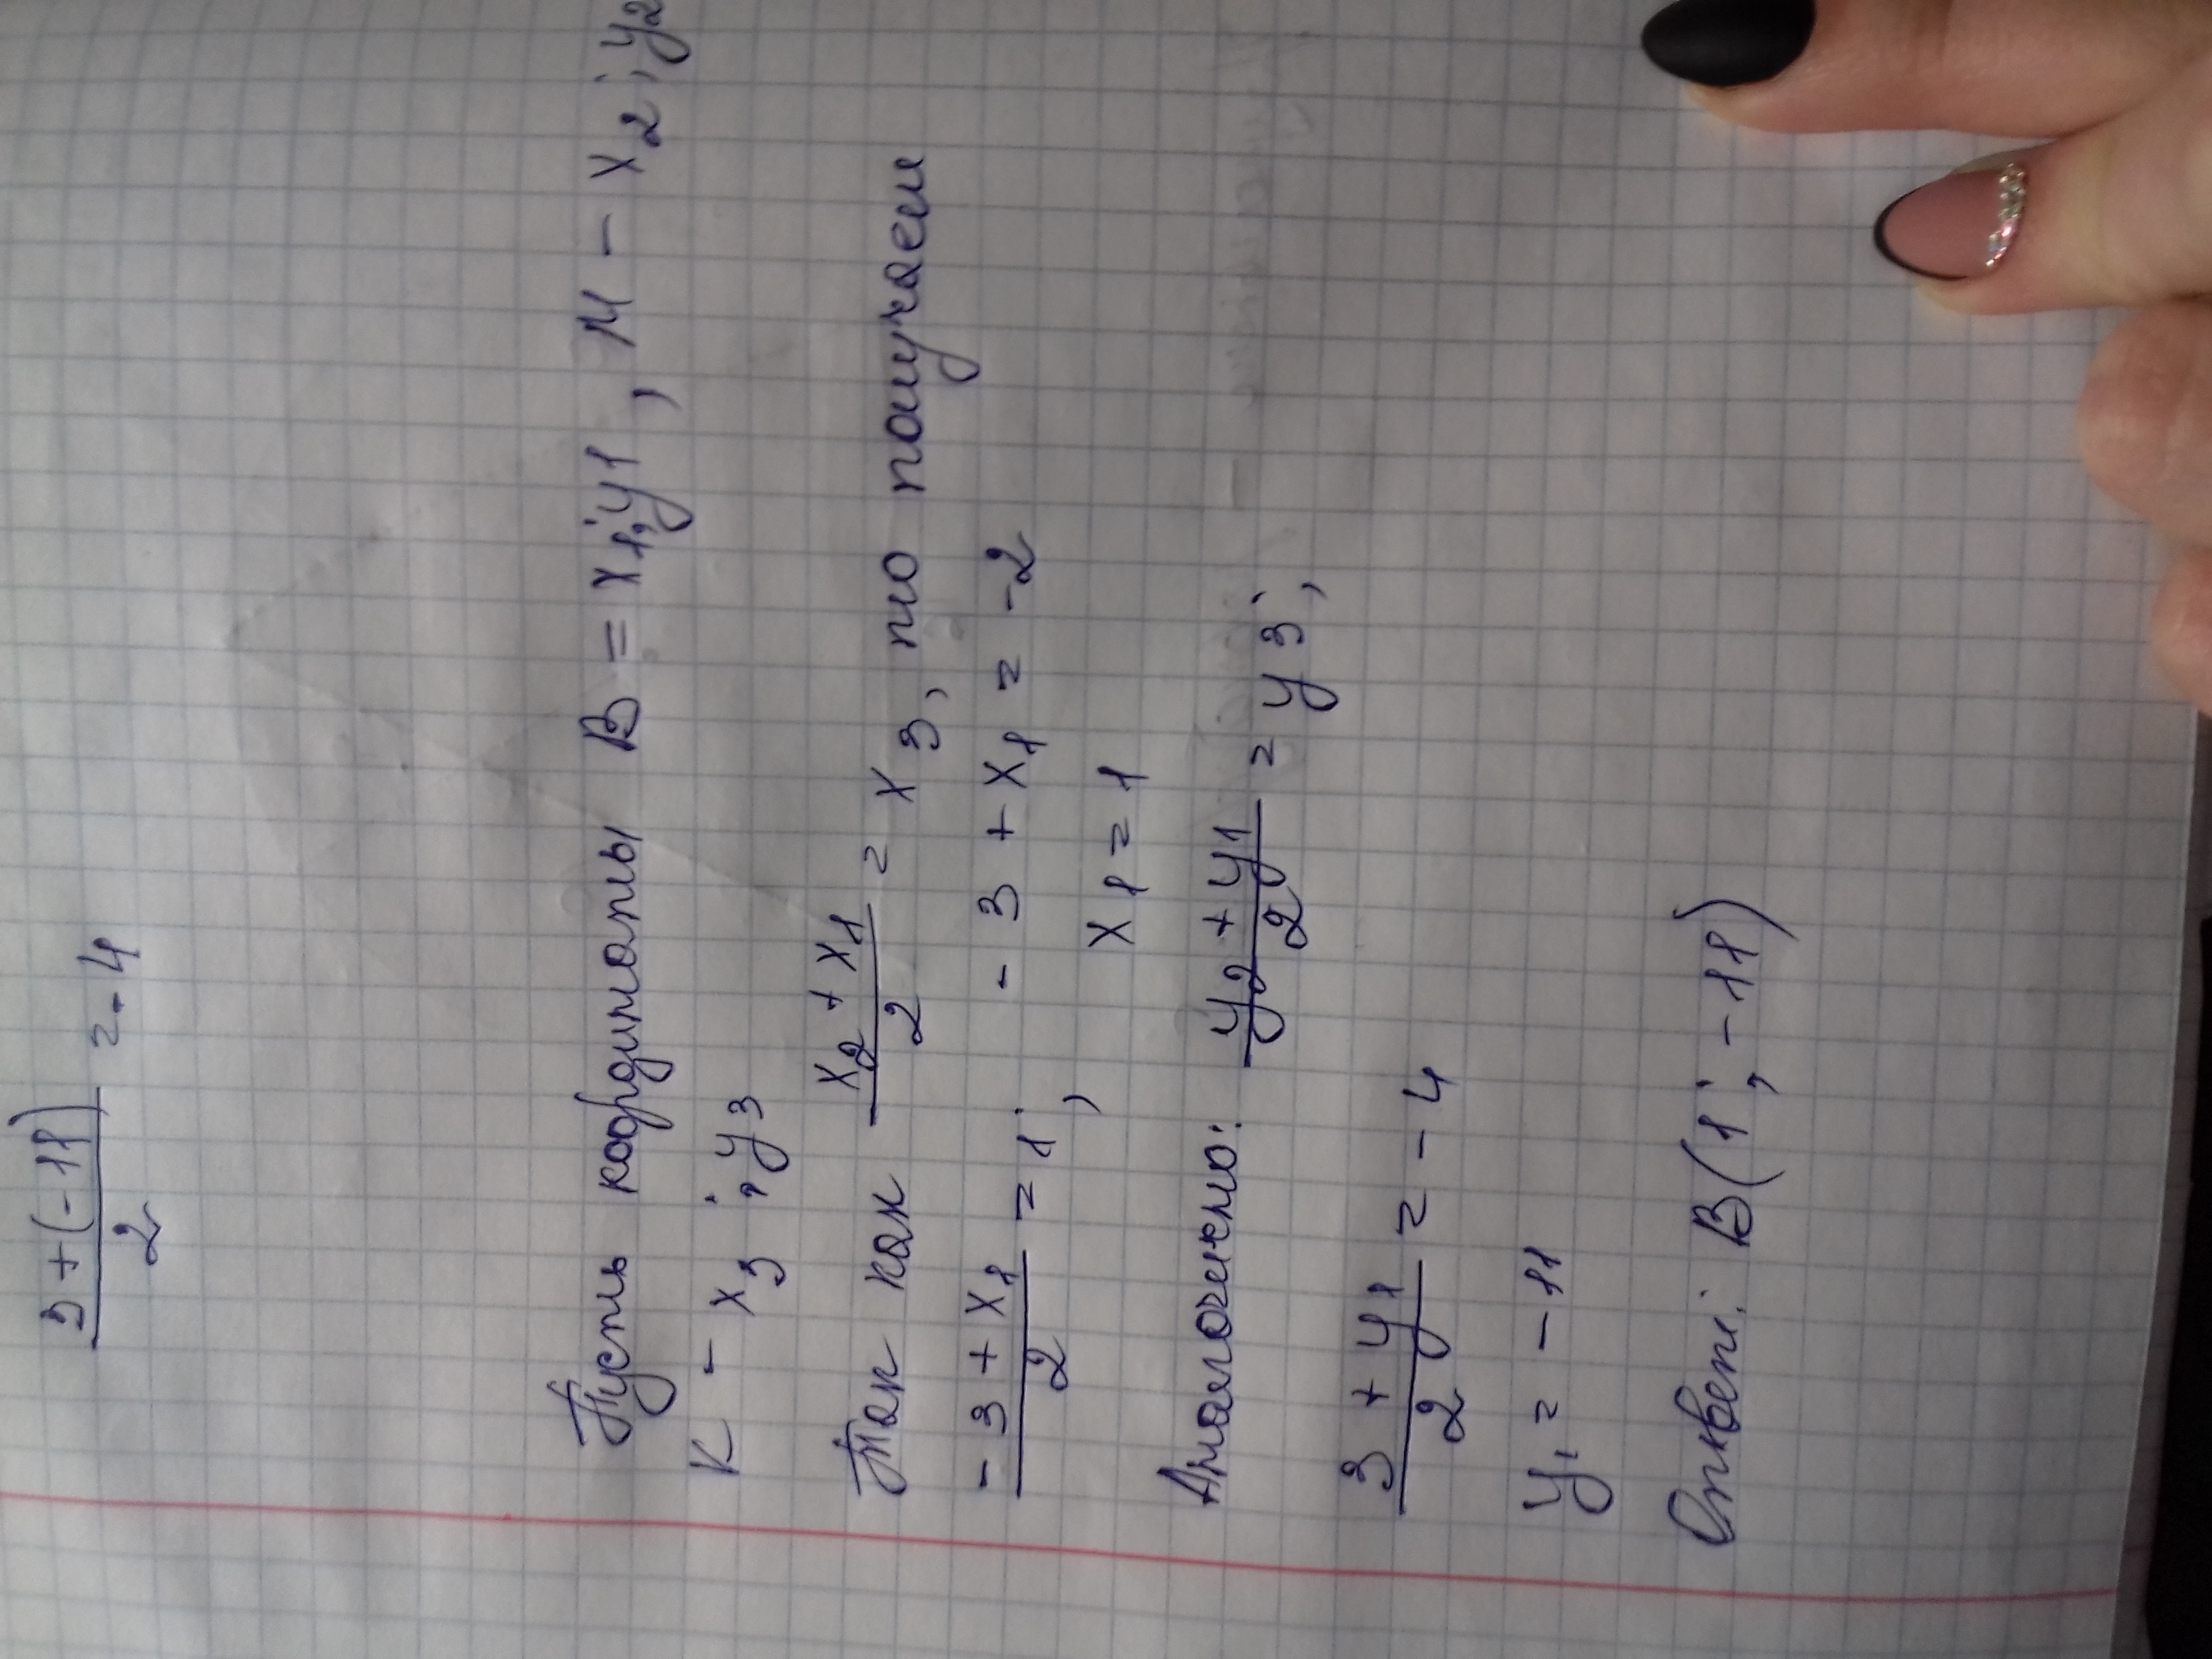 3+(-11)/2 = -4
Пусть координаты В = x1; y1, М - x2; y2
К - x3; y3
Так как x2 + x1/2 = x3, то получаем
-3 + x1/2 = 1; -3 + x1 = -2
x1 = 1
Аналогично: y2 + y1/2 = y3;
3 + y1/2 = -4
y1 = -11
Ответ: В(1; -11)